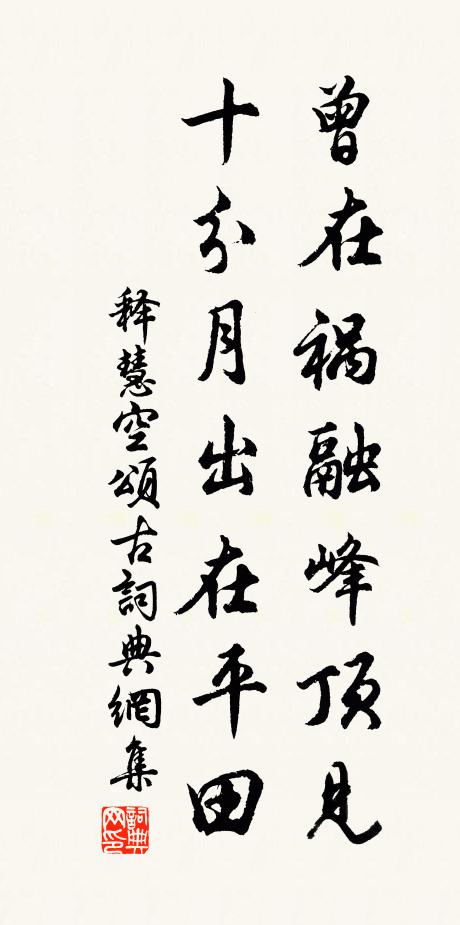 曾在祸融峰顶见
十分月出在平田
释慧空頌古詞典網集
詞典网印